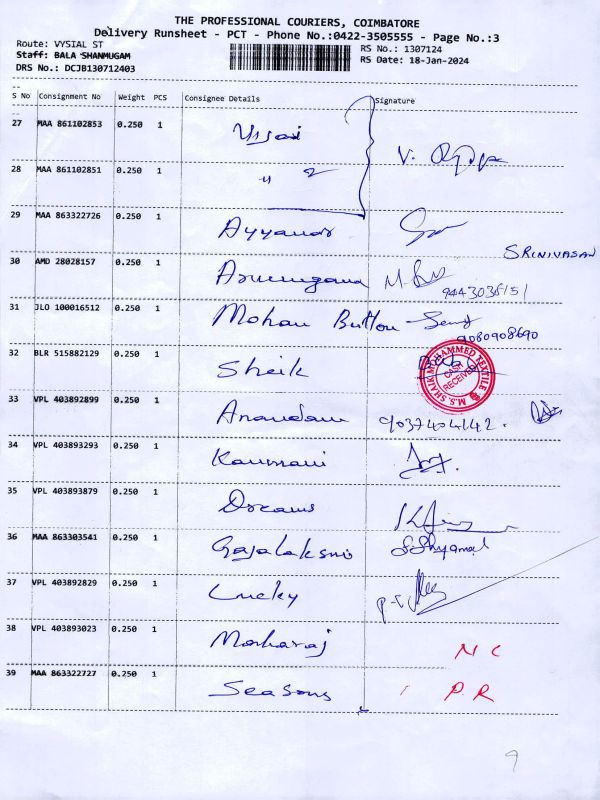 THE PROFESSIONAL COURIERS, COIMBATORE
Delivery Runsheet - PCT - Phone No.:0422-3505555 - Page No.:3
Route: VYSIAL ST RS No.: 1307124
Staff: BALA SHANMUGAM RS Date: 18-Jan-2024
DRS No.: DCJB130712403
S No Consignment No Weight PCS Consignee Details Signature
27 MAA 861102853 0.250 1
28 MAA 861102851 0.250 1
29 MAA 863322726 0.250 1 Ayyanar
SRINIVASAN
30 AMD 28028157 0.250 1 Arumugam
9443036151
31 JLO 100016512 0.250 1 Mohan Button
9080908690
32 BLR 515882129 0.250 1 Sheik
M.S. SHAIK MOHAMMED TEXTILE
CASH RECEIVED
33 VPL 403892899 0.250 1 Anandam 9037404142.
34 VPL 403893293 0.250 1 Kaumani
35 VPL 403893879 0.250 1 Dreams
36 MAA 863303541 0.250 1 Gajalaksmi S.Shyamal
37 VPL 403892829 0.250 1 Lucky
38 VPL 403893023 0.250 1 Maharaj N C
39 MAA 863322727 0.250 1 Seasons P.R
9